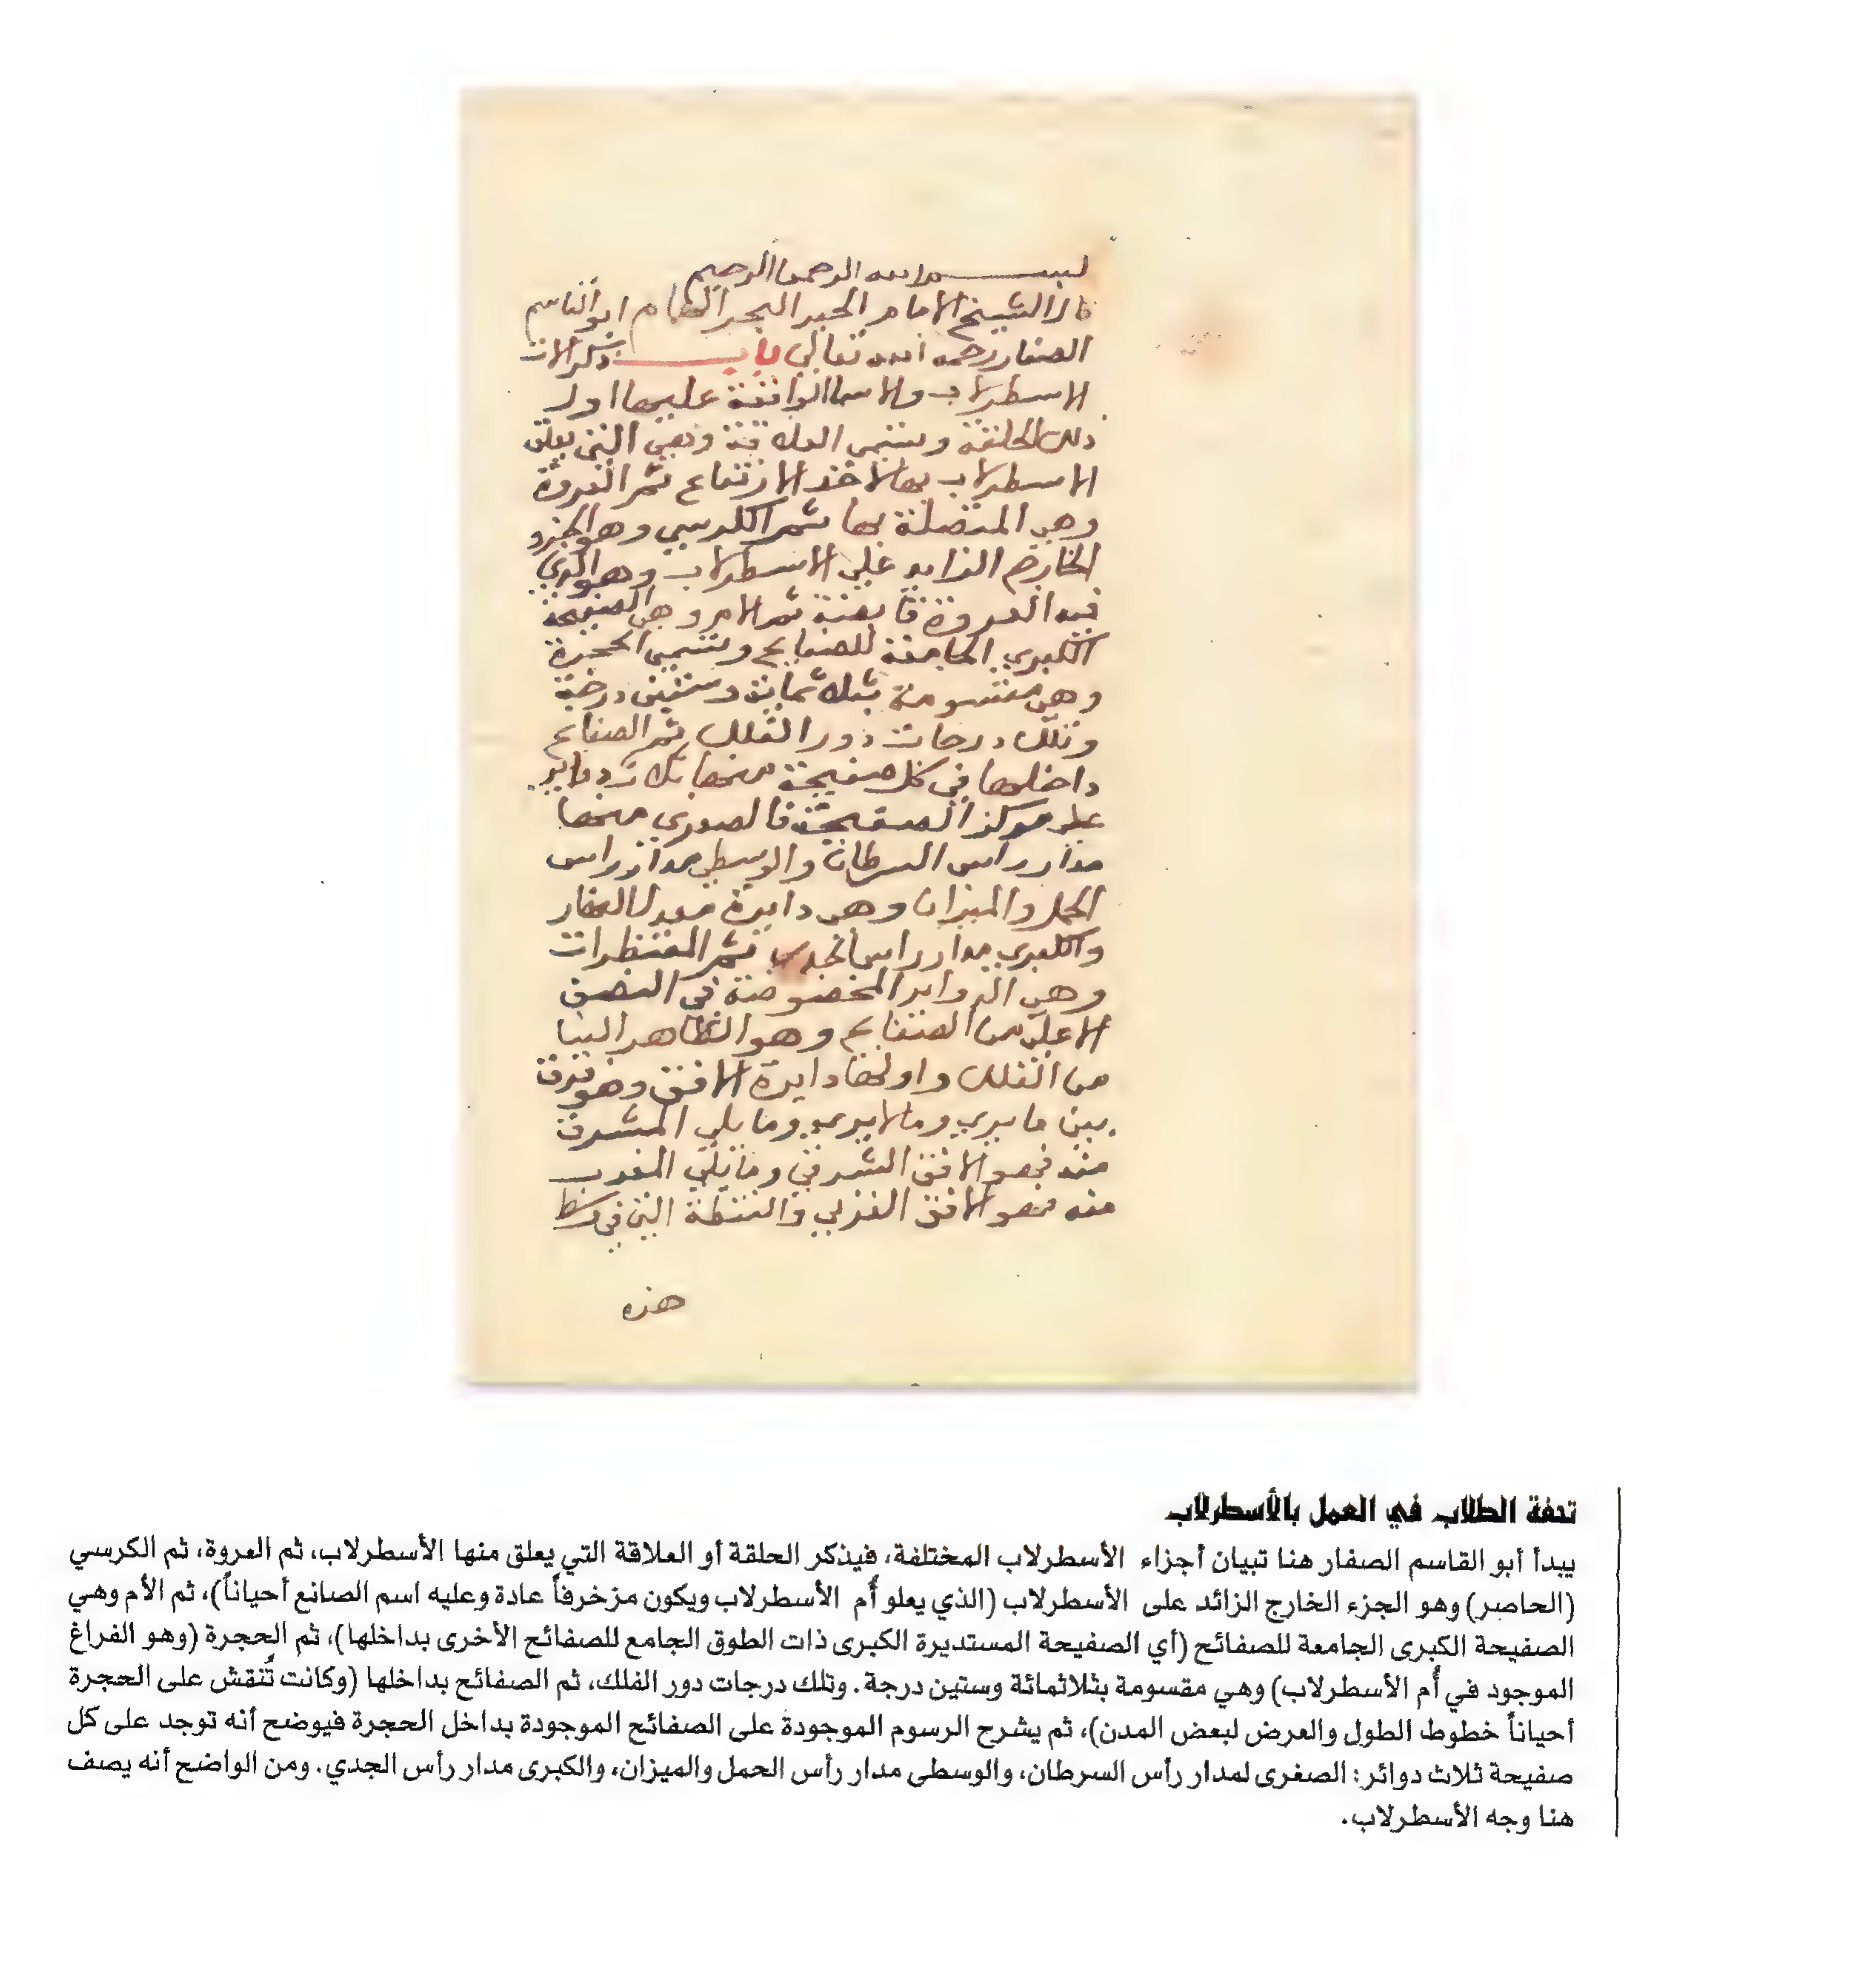 بسم الله الرحمن الرحيم
قال الشيخ الامام الحبر البحر الهمام ابو القاسم
الصفار رحمه الله تعالي باب ذكر الات
الاسطرلاب والاسما الواقعة عليها اول
ذلك الحلقة وتسمي العلاقة وهي التي يعلق
الاسطرلاب بها لاخذ الارتفاع ثم العروة
وهي المتصلة بها ثم الكرسي وهو الجزء
الخارج الزايد علي الاسطرلاب وهو الذي
فيه العروة ثم الام وهي الصفيحة
الكبري الجامعة للصفايح وتسمي الحجرة
وهي مقسومة بثلاثماية وستين درجة
وتلك درجات دور الفلك ثم الصفايح
داخلها في كل صفيحة منها ثلاث دواير
علي مركز الصفيحة فالصغري منها
مدار راس السرطان والوسطي مدار راس
الحمل والميزان وهي دايرة معدل النهار
والكبري مدار راس الجدي ثم المقنطرات
وهي الدواير المخصوصة في النصف
الاعلي من الصفايح وهو الظاهر الينا
من الفلك واولها دايرة الافق وهو فرق
بين ما يري وما لا يري وما يلي المشرق
منه فهو الافق الشرقي وما يلي المغرب
منه فهو الافق الغربي والنقطة التي في وسط
هذه
تحفة الطلاب في العمل بالأسطرلاب
يبدأ أبو القاسم الصفار هنا تبيان أجزاء الأسطرلاب المختلفة، فيذكر الحلقة أو العلاقة التي يعلق منها الأسطرلاب، ثم العروة، ثم الكرسي
(الحاصر) وهو الجزء الخارج الزائد على الأسطرلاب (الذي يعلو أُم الأسطرلاب ويكون مزخرفاً عادة وعليه اسم الصانع أحياناً)، ثم الأم وهي
الصفيحة الكبرى الجامعة للصفائح (أي الصفيحة المستديرة الكبرى ذات الطوق الجامع للصفائح الأخرى بداخلها)، ثم الحجرة (وهو الفراغ
الموجود في أُم الأسطرلاب) وهي مقسومة بثلاثمائة وستين درجة. وتلك درجات دور الفلك، ثم الصفائح بداخلها (وكانت تُنقش على الحجرة
أحياناً خطوط الطول والعرض لبعض المدن)، ثم يشرح الرسوم الموجودة على الصفائح الموجودة بداخل الحجرة فيوضح أنه توجد على كل
صفيحة ثلاث دوائر: الصغرى لمدار رأس السرطان، والوسطى مدار رأس الحمل والميزان، والكبرى مدار رأس الجدي. ومن الواضح أنه يصف
هنا وجه الأسطرلاب.